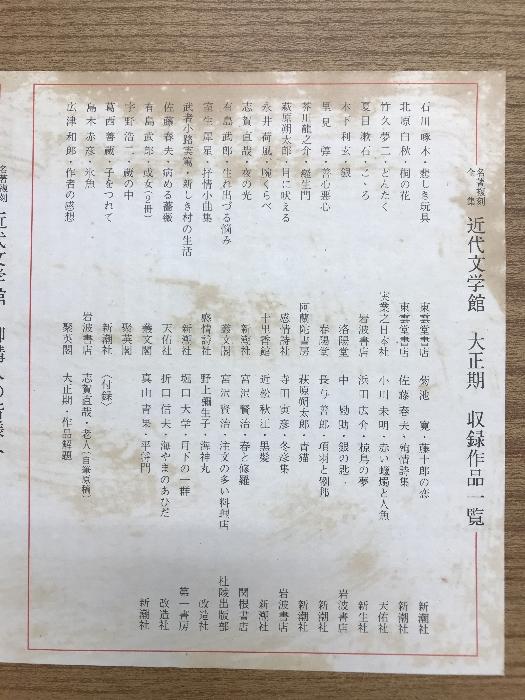 名著複刻
全集
近代文学館　大正期　収録作品一覧
石川啄木・悲しき玩具　東雲堂書店
北原白秋・桐の花　東雲堂書店
竹久夢二・どんたく　実業之日本社
夏目漱石・こゝろ　岩波書店
木下利玄・銀　洛陽堂
里見　弴・善心悪心　春陽堂
芥川龍之介・羅生門　阿蘭陀書房
萩原朔太郎・月に吠える　感情詩社
永井荷風・腕くらべ　十里香館
志賀直哉・夜の光　新潮社
有島武郎・生れ出づる悩み　叢文閣
室生犀星・抒情小曲集　感情詩社
武者小路実篤・新しき村の生活　新潮社
佐藤春夫・病める薔薇　天佑社
有島武郎・或女（２冊）　叢文閣
宇野浩二・蔵の中　聚英閣
葛西善蔵・子をつれて　新潮社
島木赤彦・氷魚　岩波書店
広津和郎・作者の感想　聚英閣
菊池　寛・藤十郎の恋　新潮社
佐藤春夫・殉情詩集　新潮社
小川未明・赤い蠟燭と人魚　天佑社
浜田広介・椋鳥の夢　新生社
中　勘助・銀の匙　岩波書店
長与善郎・項羽と劉邦　新潮社
萩原朔太郎・青猫　新潮社
寺田寅彦・冬彦集　岩波書店
近松秋江・黒髪　新潮社
宮沢賢治・春と修羅　関根書店
宮沢賢治・注文の多い料理店　杜陵出版部
野上彌生子・海神丸　改造社
堀口大学・月下の一群　第一書房
折口信夫・海やまのあひだ　改造社
真山青果・平将門　新潮社
（付録）
志賀直哉・老人（自筆原稿）
大正期・作品解題
名著複刻
近代文学館